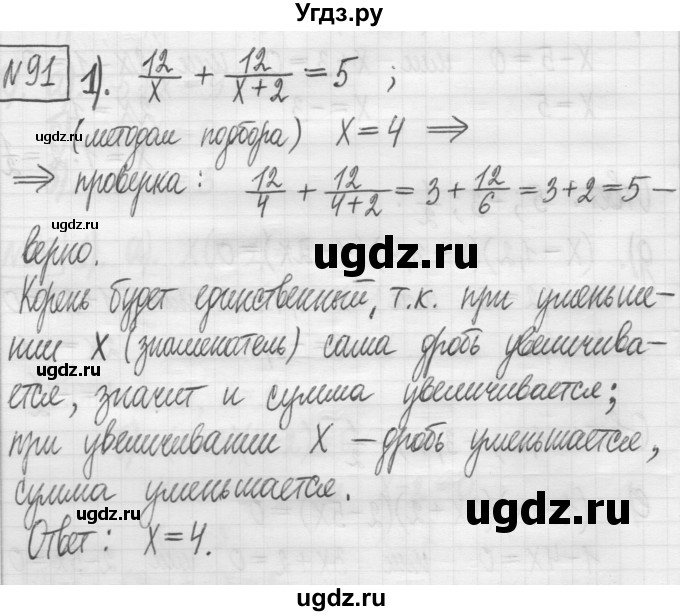 Угдз.ру
№91 1). 12/x + 12/(x+2) = 5 ;
(методом подбора) x = 4 ⇒
⇒ проверка: 12/4 + 12/(4+2) = 3 + 12/6 = 3+2 = 5 –
верно.
Корень будет единственный, т.к. при уменьше-
нии x (знаменатель) сама дробь увеличива-
ется, значит и сумма увеличивается;
при увеличивании x – дробь уменьшается,
сумма уменьшается.
Ответ: x = 4.
ugdz.ru
ugdz.ru
ugdz.ru
ugdz.ru
ugdz.ru
ugdz.ru
ugdz.ru
ugdz.ru
ugdz.ru